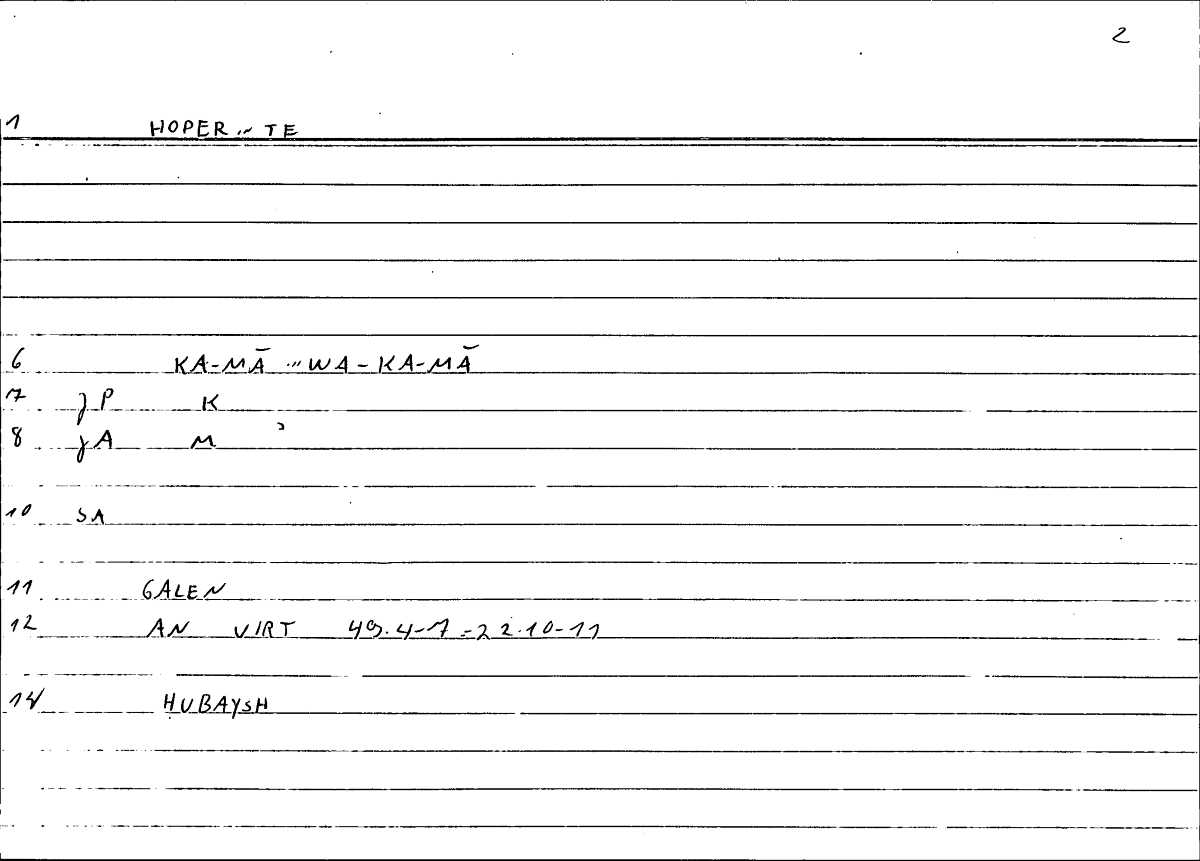 2
1 HOPER ... TE
6 KA-MĀ ... WA-KA-MĀ
7 JP K
8 JA M
10 SA
11 GALEN
12 AN VIRT 49.4-7 = 22.10-11
14 HUBAYSH